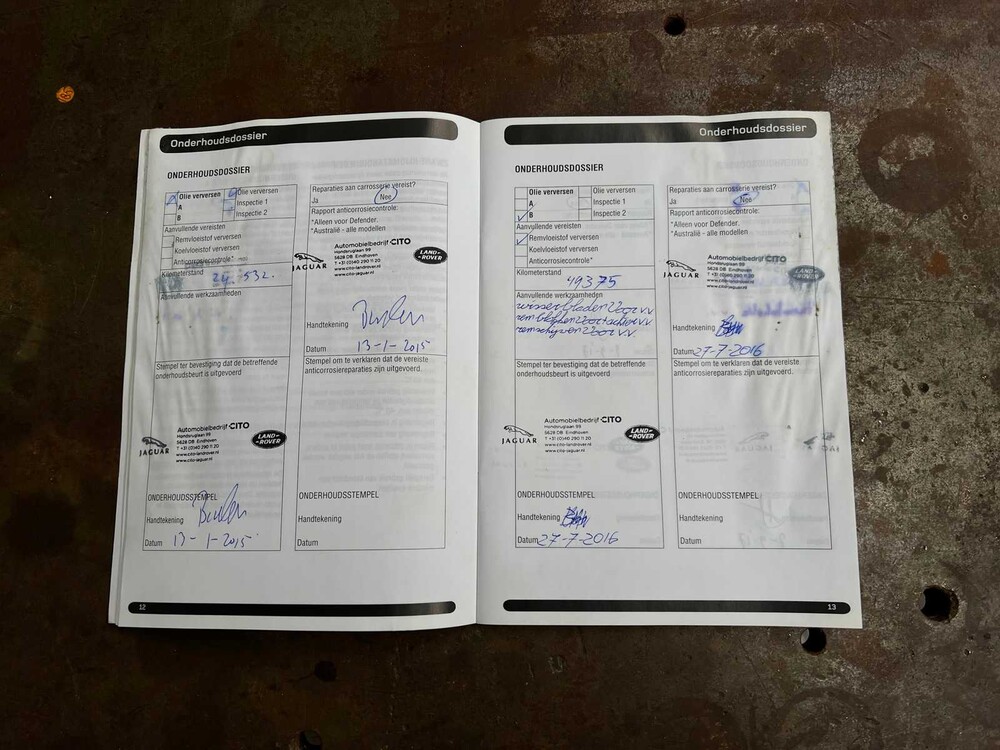 Onderhoudsdossier
ONDERHOUDSDOSSIER
Olie verversen Olie verversen
A Inspectie 1
B Inspectie 2
Aanvullende vereisten
Remvloeistof verversen
Koelvloeistof verversen
Anticorrosiecontrole*
Kilometerstand 24.532.
Aanvullende werkzaamheden
Stempel ter bevestiging dat de betreffende
onderhoudsbeurt is uitgevoerd
Automobielbedrijf CITO
Hondsruglaan 99
5628 DB Eindhoven
T +31 (0)40 290 11 20
www.cito-landrover.nl
www.cito-jaguar.nl
JAGUAR
LAND-
ROVER
ONDERHOUDSSTEMPEL
Handtekening
Datum 13-1-2015
Reparaties aan carrosserie vereist?
Ja Nee
Rapport anticorrosiecontrole:
*Alleen voor Defender.
*Australië - alle modellen
Automobielbedrijf CITO
Hondsruglaan 99
5628 DB Eindhoven
T +31 (0)40 290 11 20
www.cito-landrover.nl
www.cito-jaguar.nl
JAGUAR
LAND-
ROVER
Handtekening
Datum 13-1-2015
Stempel om te verklaren dat de vereiste
anticorrosiereparaties zijn uitgevoerd.
ONDERHOUDSSTEMPEL
Handtekening
Datum
12
Onderhoudsdossier
ONDERHOUDSDOSSIER
Olie verversen Olie verversen
A Inspectie 1
B Inspectie 2
Aanvullende vereisten
Remvloeistof verversen
Koelvloeistof verversen
Anticorrosiecontrole*
Kilometerstand
49375
Aanvullende werkzaamheden
wisserbladen voor vv
remblokken voor+achter vv
remschijven voor vv.
Stempel ter bevestiging dat de betreffende
onderhoudsbeurt is uitgevoerd
Automobielbedrijf CITO
Hondsruglaan 99
5628 DB Eindhoven
T +31 (0)40 290 11 20
www.cito-landrover.nl
www.cito-jaguar.nl
JAGUAR
LAND-
ROVER
ONDERHOUDSSTEMPEL
Handtekening
Datum 27-7-2016
Reparaties aan carrosserie vereist?
Ja Nee
Rapport anticorrosiecontrole:
*Alleen voor Defender.
*Australië - alle modellen
Automobielbedrijf CITO
Hondsruglaan 99
5628 DB Eindhoven
T +31 (0)40 290 11 20
www.cito-landrover.nl
www.cito-jaguar.nl
JAGUAR
LAND-
ROVER
Handtekening
Datum 27-7-2016
Stempel om te verklaren dat de vereiste
anticorrosiereparaties zijn uitgevoerd.
ONDERHOUDSSTEMPEL
Handtekening
Datum
13